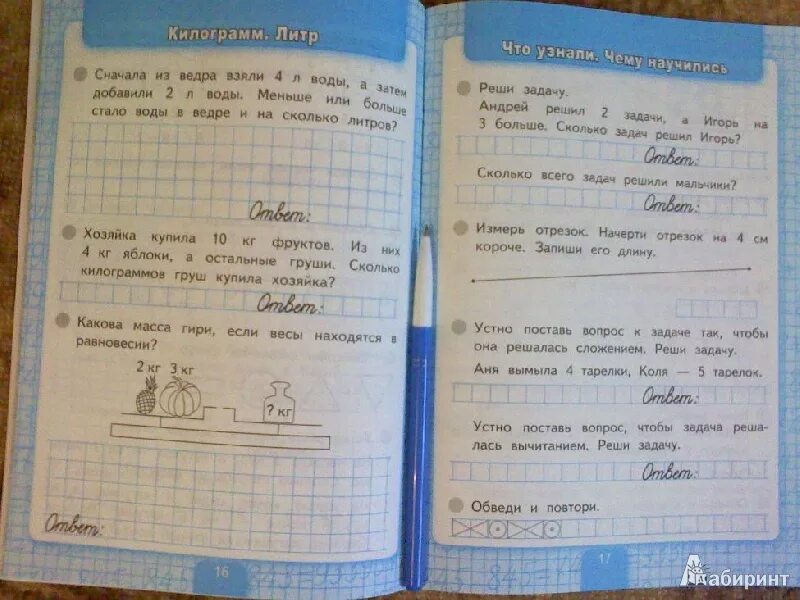 Килограмм. Литр
Сначала из ведра взяли 4 л воды, а затем
добавили 2 л воды. Меньше или больше
стало воды в ведре и на сколько литров?
Ответ:
Хозяйка купила 10 кг фруктов. Из них
4 кг яблоки, а остальные груши. Сколько
килограммов груш купила хозяйка?
Ответ:
Какова масса гири, если весы находятся в
равновесии?
2 кг 3 кг
? кг
Ответ:
16
Что узнали. Чему научились
Реши задачу.
Андрей решил 2 задачи, а Игорь на
3 больше. Сколько задач решил Игорь?
Ответ:
Сколько всего задач решили мальчики?
Ответ:
Измерь отрезок. Начерти отрезок на 4 см
короче. Запиши его длину.
Устно поставь вопрос к задаче так, чтобы
она решалась сложением. Реши задачу.
Аня вымыла 4 тарелки, Коля — 5 тарелок.
Ответ:
Устно поставь вопрос, чтобы задача реша-
лась вычитанием. Реши задачу.
Ответ:
Обведи и повтори.
17
Лабиринт